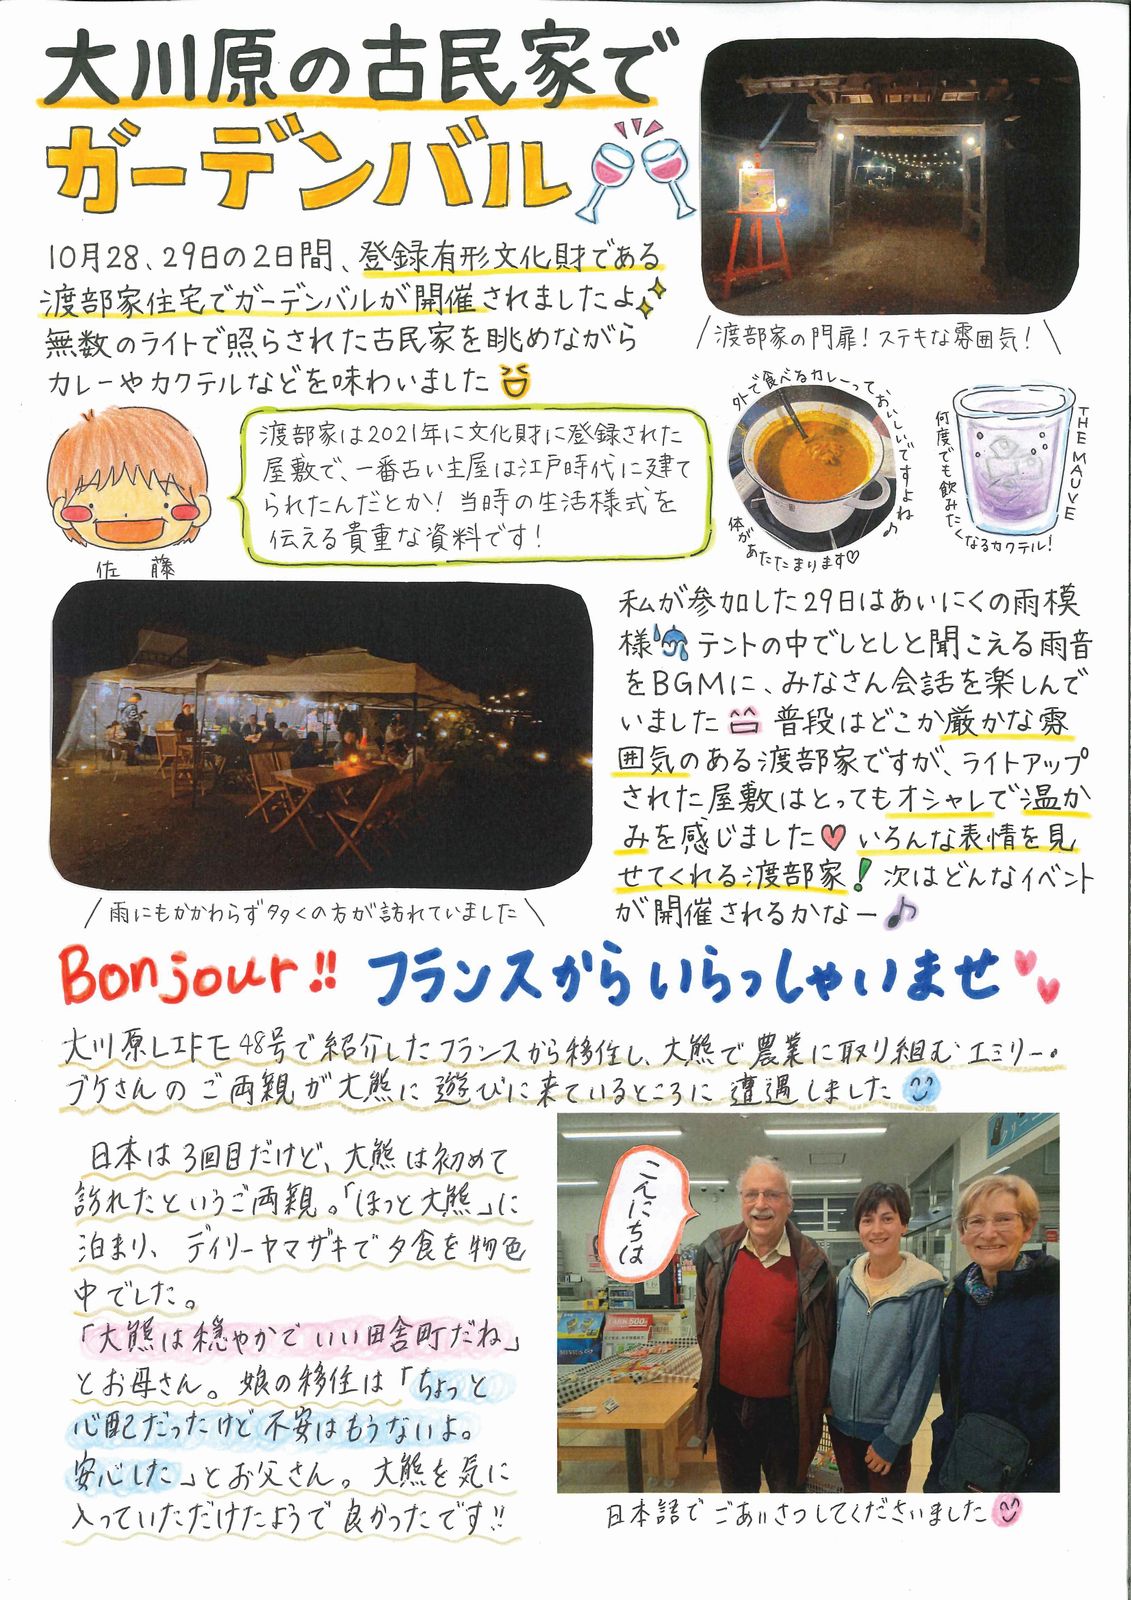 大川原の古民家で
ガーデンバル
10月28、29日の2日間、登録有形文化財である
渡部家住宅でガーデンバルが開催されましたよ
無数のライトで照らされた古民家を眺めながら
カレーやカクテルなどを味わいました
渡部家の門扉！ステキな雰囲気！
渡部家は2021年に文化財に登録された
屋敷で、一番古い主屋は江戸時代に建て
られたんだとか！当時の生活様式を
伝える貴重な資料です！
佐藤
外で食べるカレーっておいしいですよね♪
体があたたまります♡
THE MAUVE
何度でも飲みたくなるカクテル！
私が参加した29日はあいにくの雨模
様 テントの中でしとしと聞こえる雨音
をBGMに、みなさん会話を楽しんで
いました 普段はどこか厳かな雰
囲気のある渡部家ですが、ライトアップ
された屋敷はとってもオシャレで温か
みを感じました♥ いろんな表情を見
せてくれる渡部家！次はどんなイベント
が開催されるかなー♪
雨にもかかわらず多くの方が訪れていました
Bonjour!! フランスからいらっしゃいませ
大川原LIFE48号で紹介したフランスから移住し、大熊で農業に取り組むエミリー・
ブケさんのご両親が大熊に遊びに来ているところに遭遇しました
日本は3回目だけど、大熊は初めて
訪れたというご両親。「ほっと大熊」に
泊まり、デイリーヤマザキで夕食を物色
中でした。
「大熊は穏やかでいい田舎町だね」
とお母さん。娘の移住は「ちょっと
心配だったけど不安はもうないよ。
安心した」とお父さん。大熊を気に
入っていただけたようで良かったです!!
こんにちは
日本語でごあいさつしてくださいました